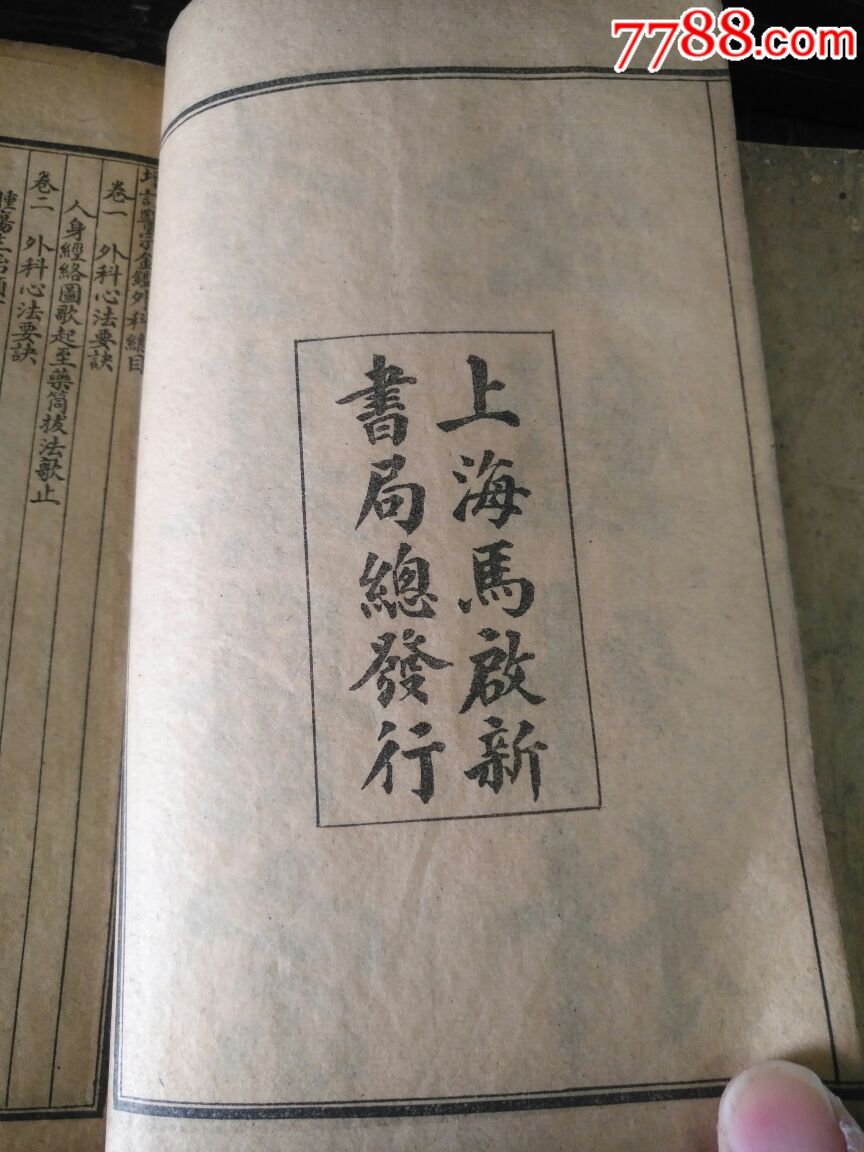 7788.com
上海馬啟新
書局總發行
增訂醫宗金鑑外科總目
卷一 外科心法要訣
人身經絡圖歌起至藥筒拔法歌止
卷二 外科心法要訣
腫瘍主治類